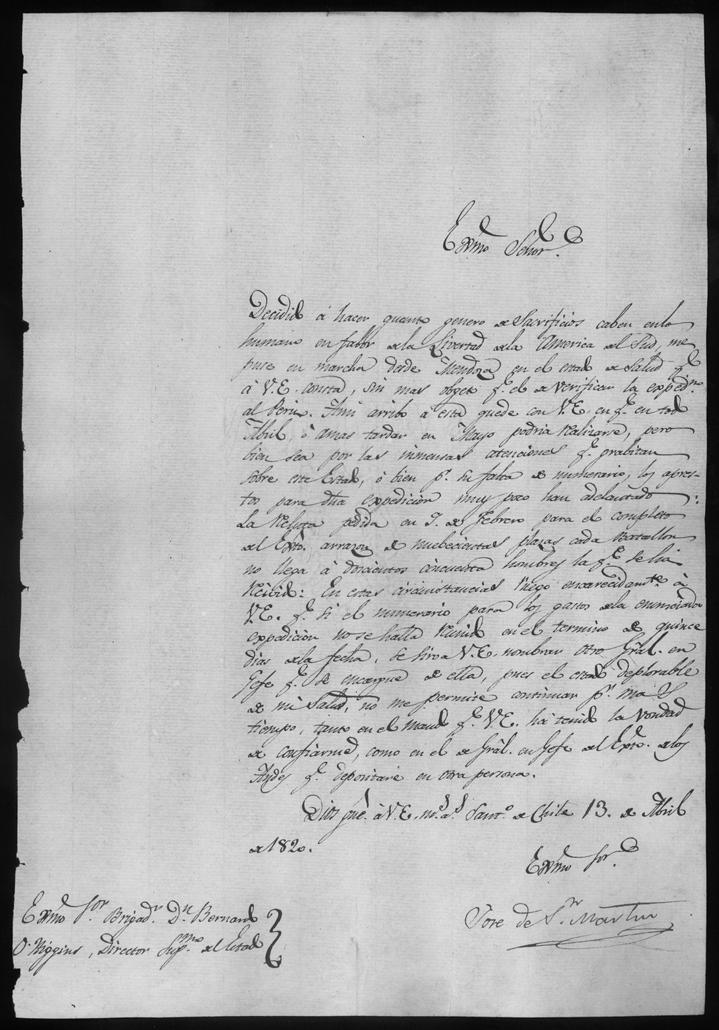 Exmo Señor.
Decidido á hacer quanto genero de Sacrificios caben en lo
humano en fabor de la Livertad de la America del Sud, me
puse en marcha desde Mendoza en el estado de Salud qe.
á V.E. consta, sin mas objeto qe. el de verificar la expedn.
al Perú. Ami arribo á esta quede con V.E. en qe. en todo
Abril, ó amas tardar en Mayo podria realizarse, pero
bien sea por las inmensas atenciones qe. grabitan
sobre este Estado, ó bien pr. su falta de numerario, los apres-
tos para dha expedición muy poco han adelantado:
La recluta pedida en 3. de Febrero para el completo
del Exto. arrazon de nuebecientas plazas cada Batallon
no llega á doscientos cincuenta hombres la qe. se ha
recivido: En estas circunstancias ruego encarecidamte. á
V.E. qe. si el numerario para los gastos de la enunciada
expedición no se halla reunido en el termino de quince
dias de la fecha, se sirva V.E. nombrar otro Gral. en
Gefe qe. se encargue de ella, pues el estado deplorable
de mi salud, no me permite continuar pr. mas
tiempo, tanto en el mando qe. V.E. há tenido la vondad
de confiarme, como en el de Gral. en Gefe del Exto. de los
Andes qe. depositaré en otra persona.
Dios gue. á V.E. ms. as. Santo. de Chile 13. de Abril
de 1820.
Exmo Sor.
Jose de Sn. Martin
Exmo Sor. Brigadr. Dn. Bernardo
O'Higgins, Director Supmo. del Estado